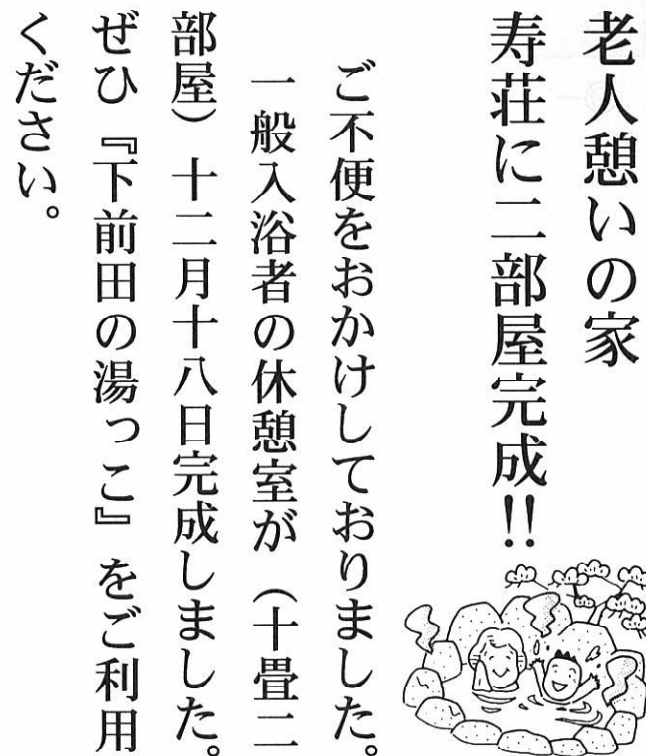 老人憩いの家
寿荘に二部屋完成!!
ご不便をおかけしておりました。
一般入浴者の休憩室が（十畳二
部屋）十二月十八日完成しました。
ぜひ『下前田の湯っこ』をご利用
ください。